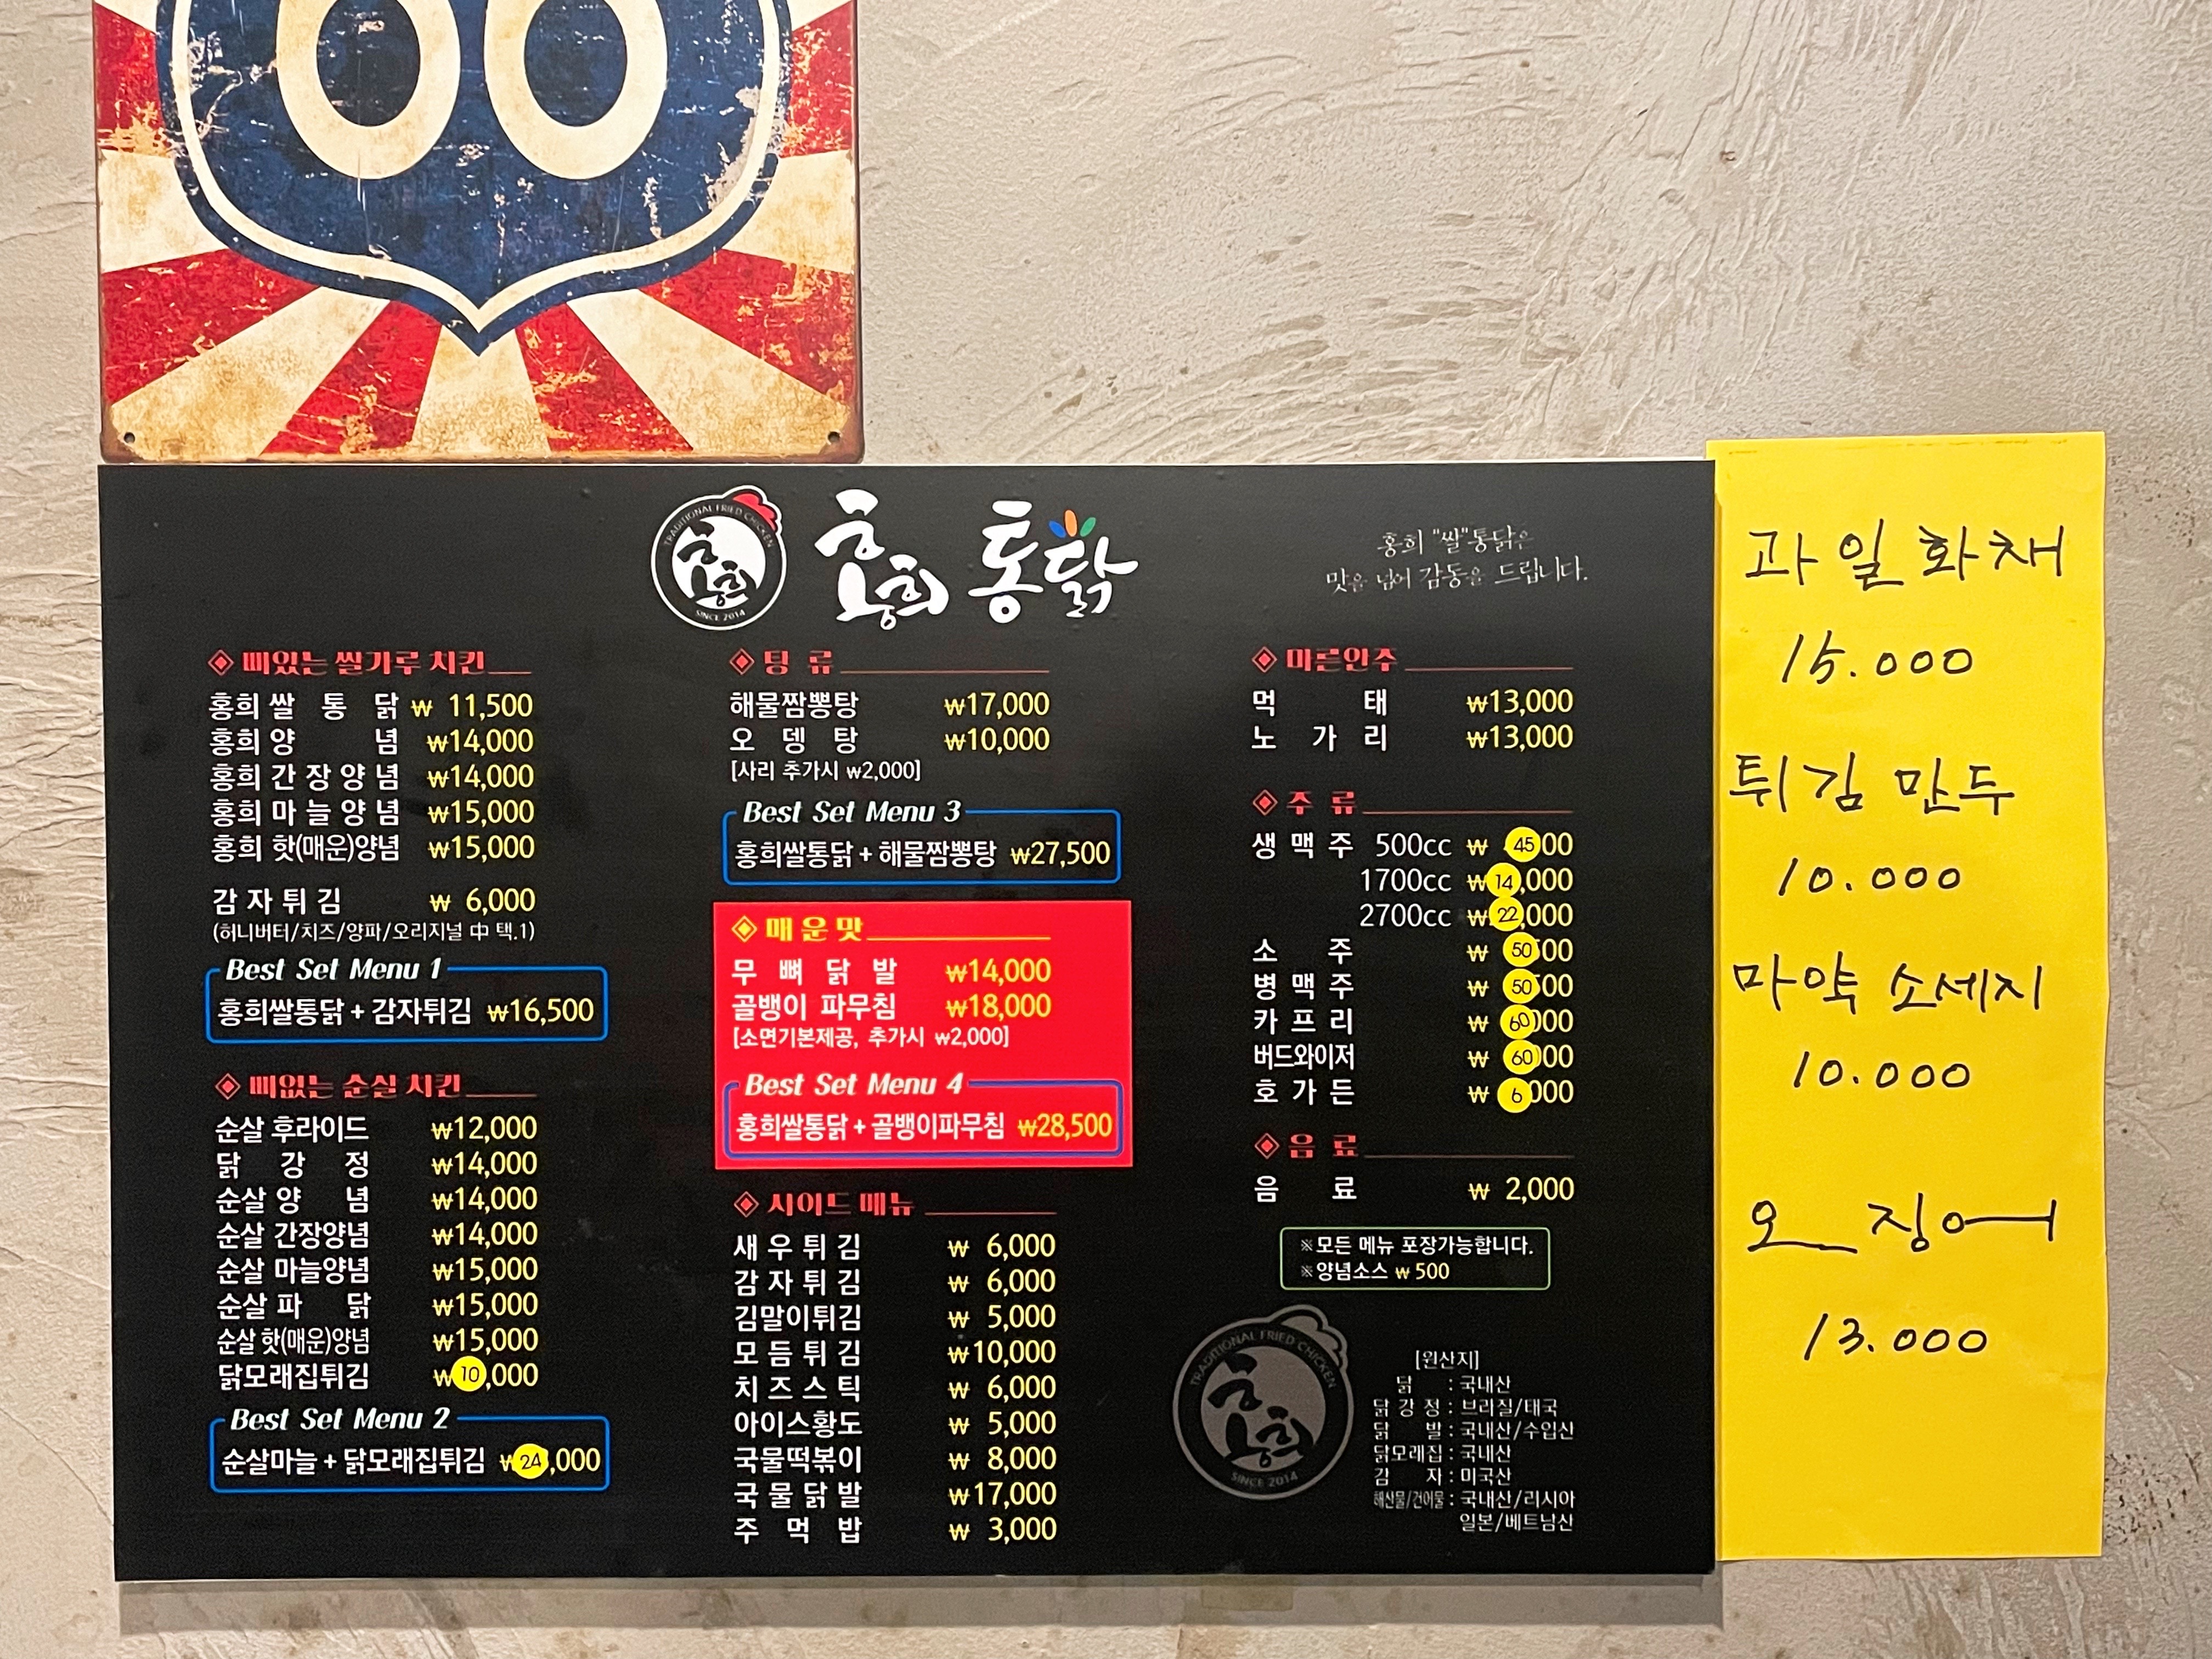 66
TRADITIONAL FRIED CHICKEN
홍희
SINCE 2014
홍희 통닭
홍희 "쌀"통닭은
맛을 넘어 감동을 드립니다.
뼈있는 쌀가루 치킨
홍희 쌀 통 닭 ₩ 11,500
홍희 양 념 ₩14,000
홍희 간장양념 ₩14,000
홍희 마늘양념 ₩15,000
홍희 핫(매운)양념 ₩15,000
감자튀김 ₩ 6,000
(허니버터/치즈/양파/오리지널 中 택.1)
Best Set Menu 1
홍희쌀통닭 + 감자튀김 ₩16,500
뼈없는 순살 치킨
순살 후라이드 ₩12,000
닭 강 정 ₩14,000
순살 양 념 ₩14,000
순살 간장양념 ₩14,000
순살 마늘양념 ₩15,000
순살 파 닭 ₩15,000
순살 핫(매운)양념 ₩15,000
닭모래집튀김 ₩10,000
Best Set Menu 2
순살마늘 + 닭모래집튀김 ₩24,000
탕 류
해물짬뽕탕 ₩17,000
오 뎅 탕 ₩10,000
[사리 추가시 ₩2,000]
Best Set Menu 3
홍희쌀통닭 + 해물짬뽕탕 ₩27,500
매운맛
무 뼈 닭 발 ₩14,000
골뱅이 파무침 ₩18,000
[소면기본제공, 추가시 ₩2,000]
Best Set Menu 4
홍희쌀통닭 + 골뱅이파무침 ₩28,500
사이드 메뉴
새우튀김 ₩ 6,000
감자튀김 ₩ 6,000
김말이튀김 ₩ 5,000
모듬튀김 ₩10,000
치즈스틱 ₩ 6,000
아이스황도 ₩ 5,000
국물떡볶이 ₩ 8,000
국물닭발 ₩17,000
주 먹 밥 ₩ 3,000
마른안주
먹 태 ₩13,000
노 가 리 ₩13,000
주 류
생 맥 주 500cc ₩ 4500
1700cc ₩14,000
2700cc ₩22,000
소 주 ₩ 5000
병 맥 주 ₩ 5000
카 프 리 ₩ 6000
버드와이저 ₩ 6000
호 가 든 ₩ 6000
음 료
음 료 ₩ 2,000
※모든 메뉴 포장가능합니다.
※양념소스 ₩ 500
TRADITIONAL FRIED CHICKEN
홍희
SINCE 2014
[원산지]
닭 : 국내산
닭 강 정 : 브라질/태국
닭 발 : 국내산/수입산
닭모래집 : 국내산
감 자 : 미국산
해산물/건어물 : 국내산/러시아
일본/베트남산
과일화채
15.000
튀김 만두
10.000
마약 소세지
10.000
오징어
13.000